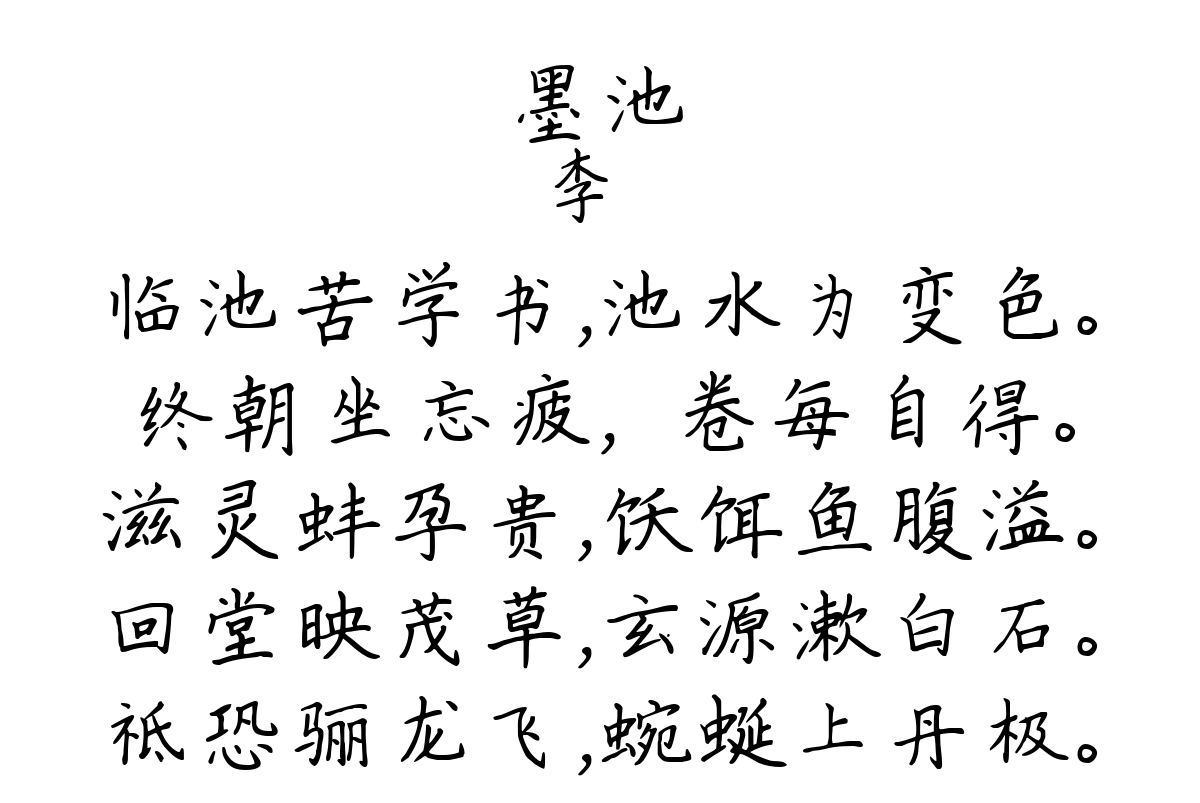 墨池
李
临池苦学书,池水为变色。
终朝坐忘疲,卷每自得。
滋灵蚌孕贵,饫饵鱼腹溢。
回堂映茂草,玄源漱白石。
祗恐骊龙飞,蜿蜒上丹极。